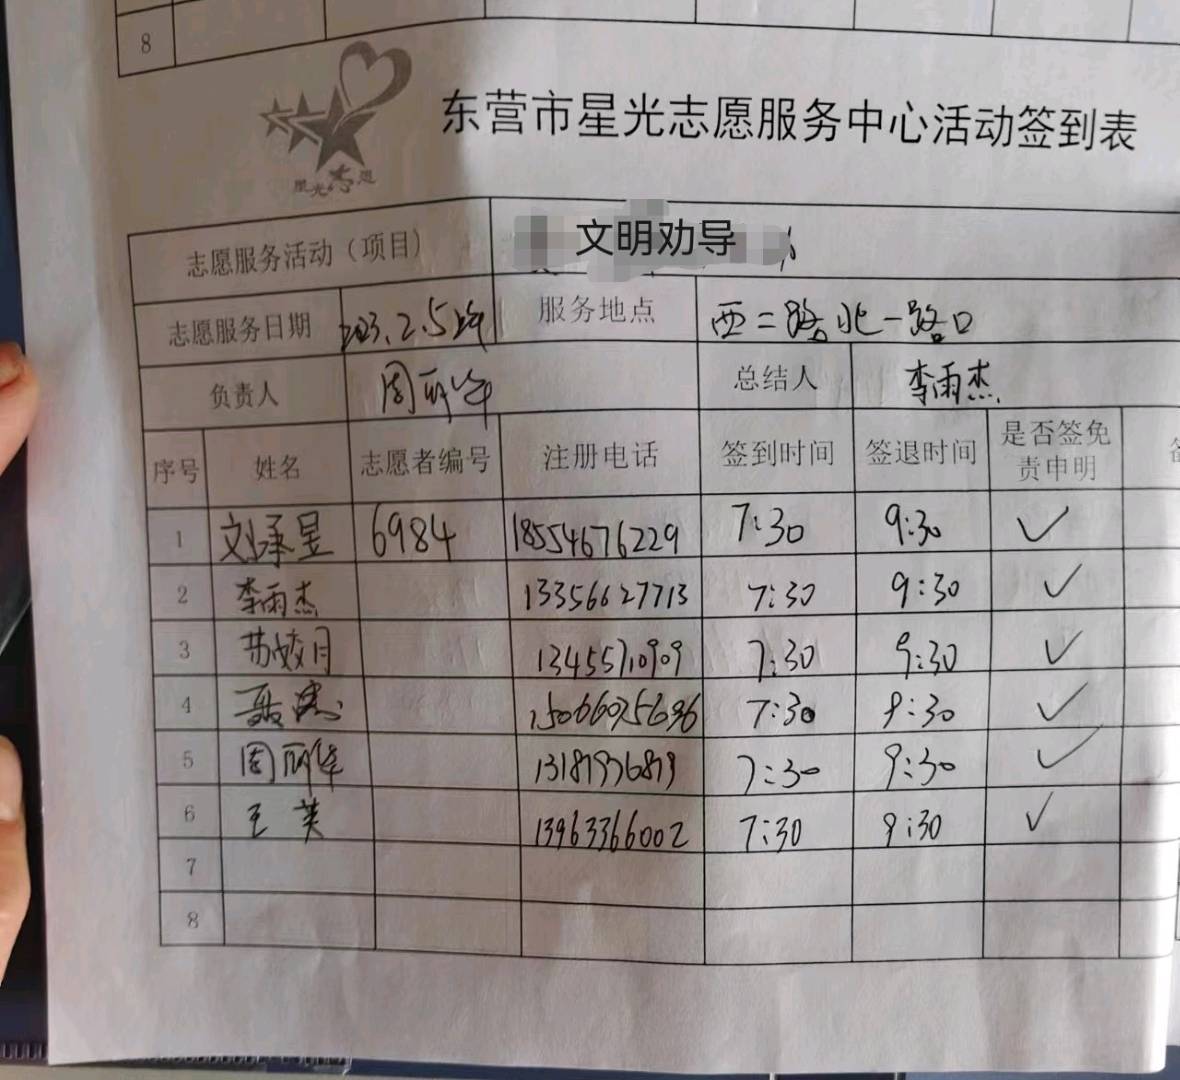 8
星光志愿
东营市星光志愿服务中心活动签到表
志愿服务活动（项目） 文明劝导
志愿服务日期 2023.2.5上午 服务地点 西二路北一路口
负责人 周丽华 总结人 李雨杰
序号 姓名 志愿者编号 注册电话 签到时间 签退时间 是否签免责申明
1 刘承昱 6984 18554676229 7:30 9:30 ✓
2 李雨杰 13356627713 7:30 9:30 ✓
3 苏姣月 13455710909 7:30 9:30 ✓
4 7:30 9:30 ✓
5 周丽华 7:30 9:30 ✓
6 王英 13963366002 7:30 9:30 ✓
7
8